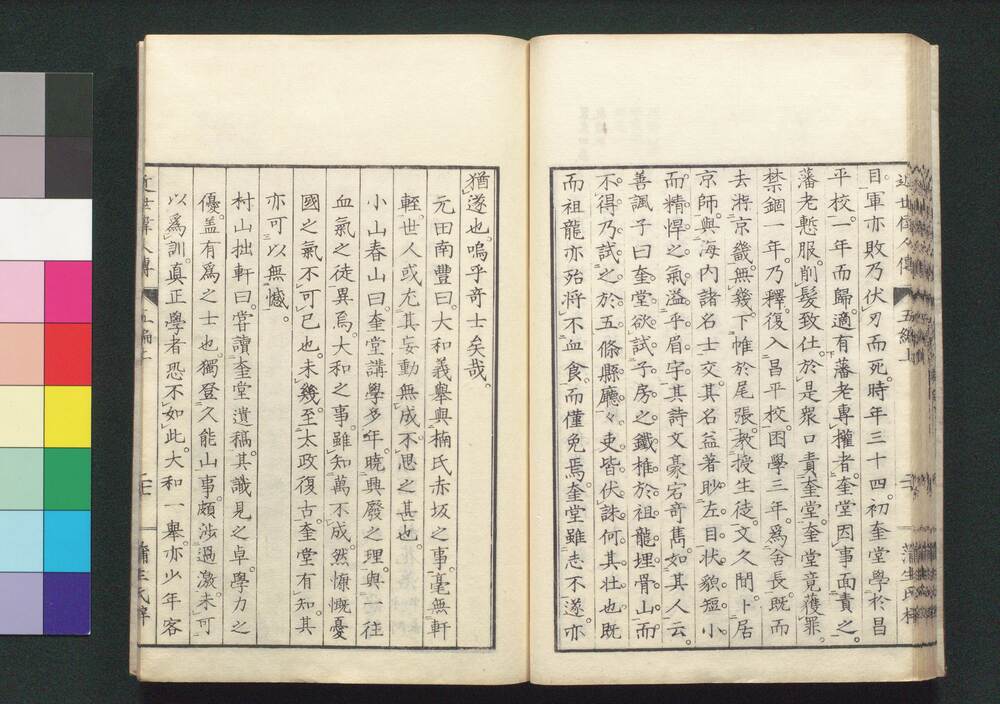 目。軍亦敗乃伏刃而死。時年三十四。初奎堂學於昌
平校。一年而歸。適有藩老專權者。奎堂因事面責之。
藩老慙服。削髮致仕。於是衆口責奎堂。奎堂竟獲罪。
禁錮一年。乃釋。復入昌平校。困學三年。爲舍長。既而
去將京畿。無幾。下帷於尾張。教授生徒。文久間卜居
京師。與海内諸名士交。其名益著。眇左目。状貌短小。
而精悍之氣溢乎眉宇。其詩文豪宕奇雋。如其人云。
善諷子曰。奎堂欲試子房之鐵椎於祖龍埋骨山。而
不得。乃試之於五條縣廳。々吏皆伏誅。何其壮也。既
而祖龍亦殆將不血食。而僅免焉。奎堂雖志不遂。亦
猶遂也。嗚乎奇士矣哉。
元田南豐曰。大和義舉與楠氏赤坂之事。毫無軒
輊。世人或尤其妄動無成。不思之甚也。
小山春山曰。奎堂講學多年。曉興廢之理。與一往
血氣之徒異焉。大和之事。雖知萬不成。然慷慨憂
國之氣不可已也。未幾。至太政復古。奎堂有知。其
亦可以無憾。
村山拙軒曰。嘗讀奎堂遺稿。其識見之卓。學力之
優。盖有爲之士也。獨登久能山事。頗涉過激。未可
以爲訓。真正學者恐不如此。大和一舉。亦少年客
近世偉人傳
五編上
蒲生氏梓